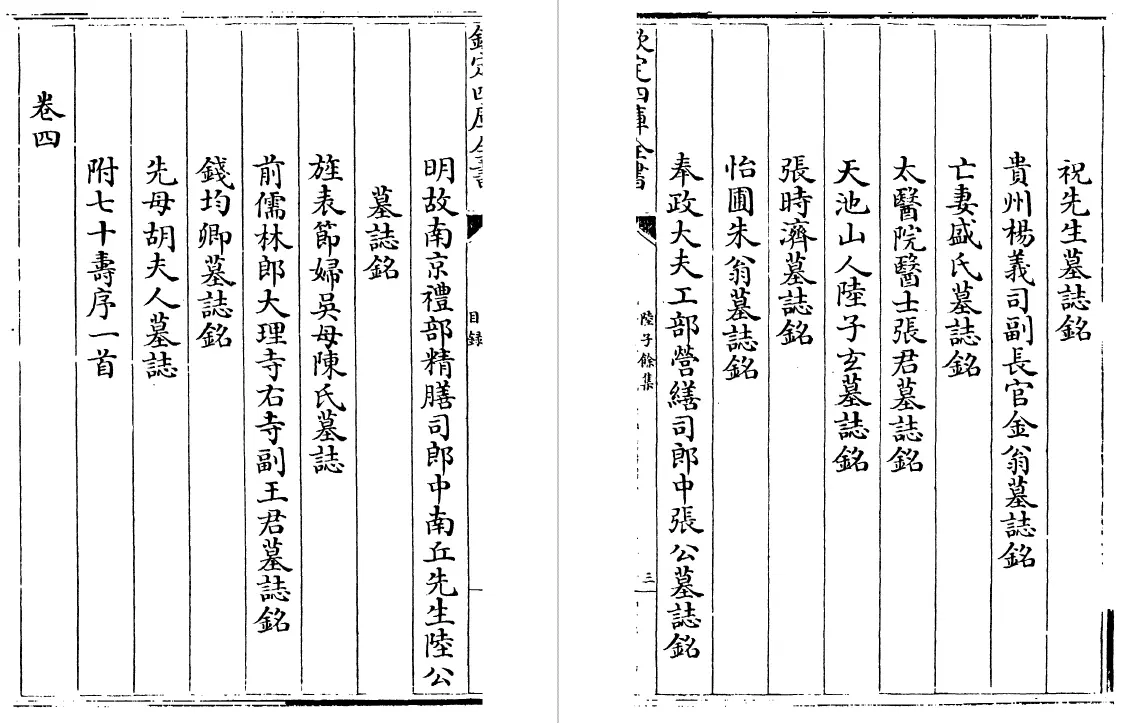 祝先生墓誌銘
貴州楊義司副長官金翁墓誌銘
亡妻盛氏墓誌銘
太醫院醫士張君墓誌銘
天池山人陸子玄墓誌銘
張時濟墓誌銘
怡圃朱翁墓誌銘
奉政大夫工部營繕司郎中張公墓誌銘
欽定四庫全書
陸子餘集
三
欽定四庫全書
目錄
明故南京禮部精膳司郎中南丘先生陸公
墓誌銘
旌表節婦吳母陳氏墓誌
前儒林郎大理寺右寺副王君墓誌銘
錢均卿墓誌銘
先母胡夫人墓誌
附七十壽序一首
卷四